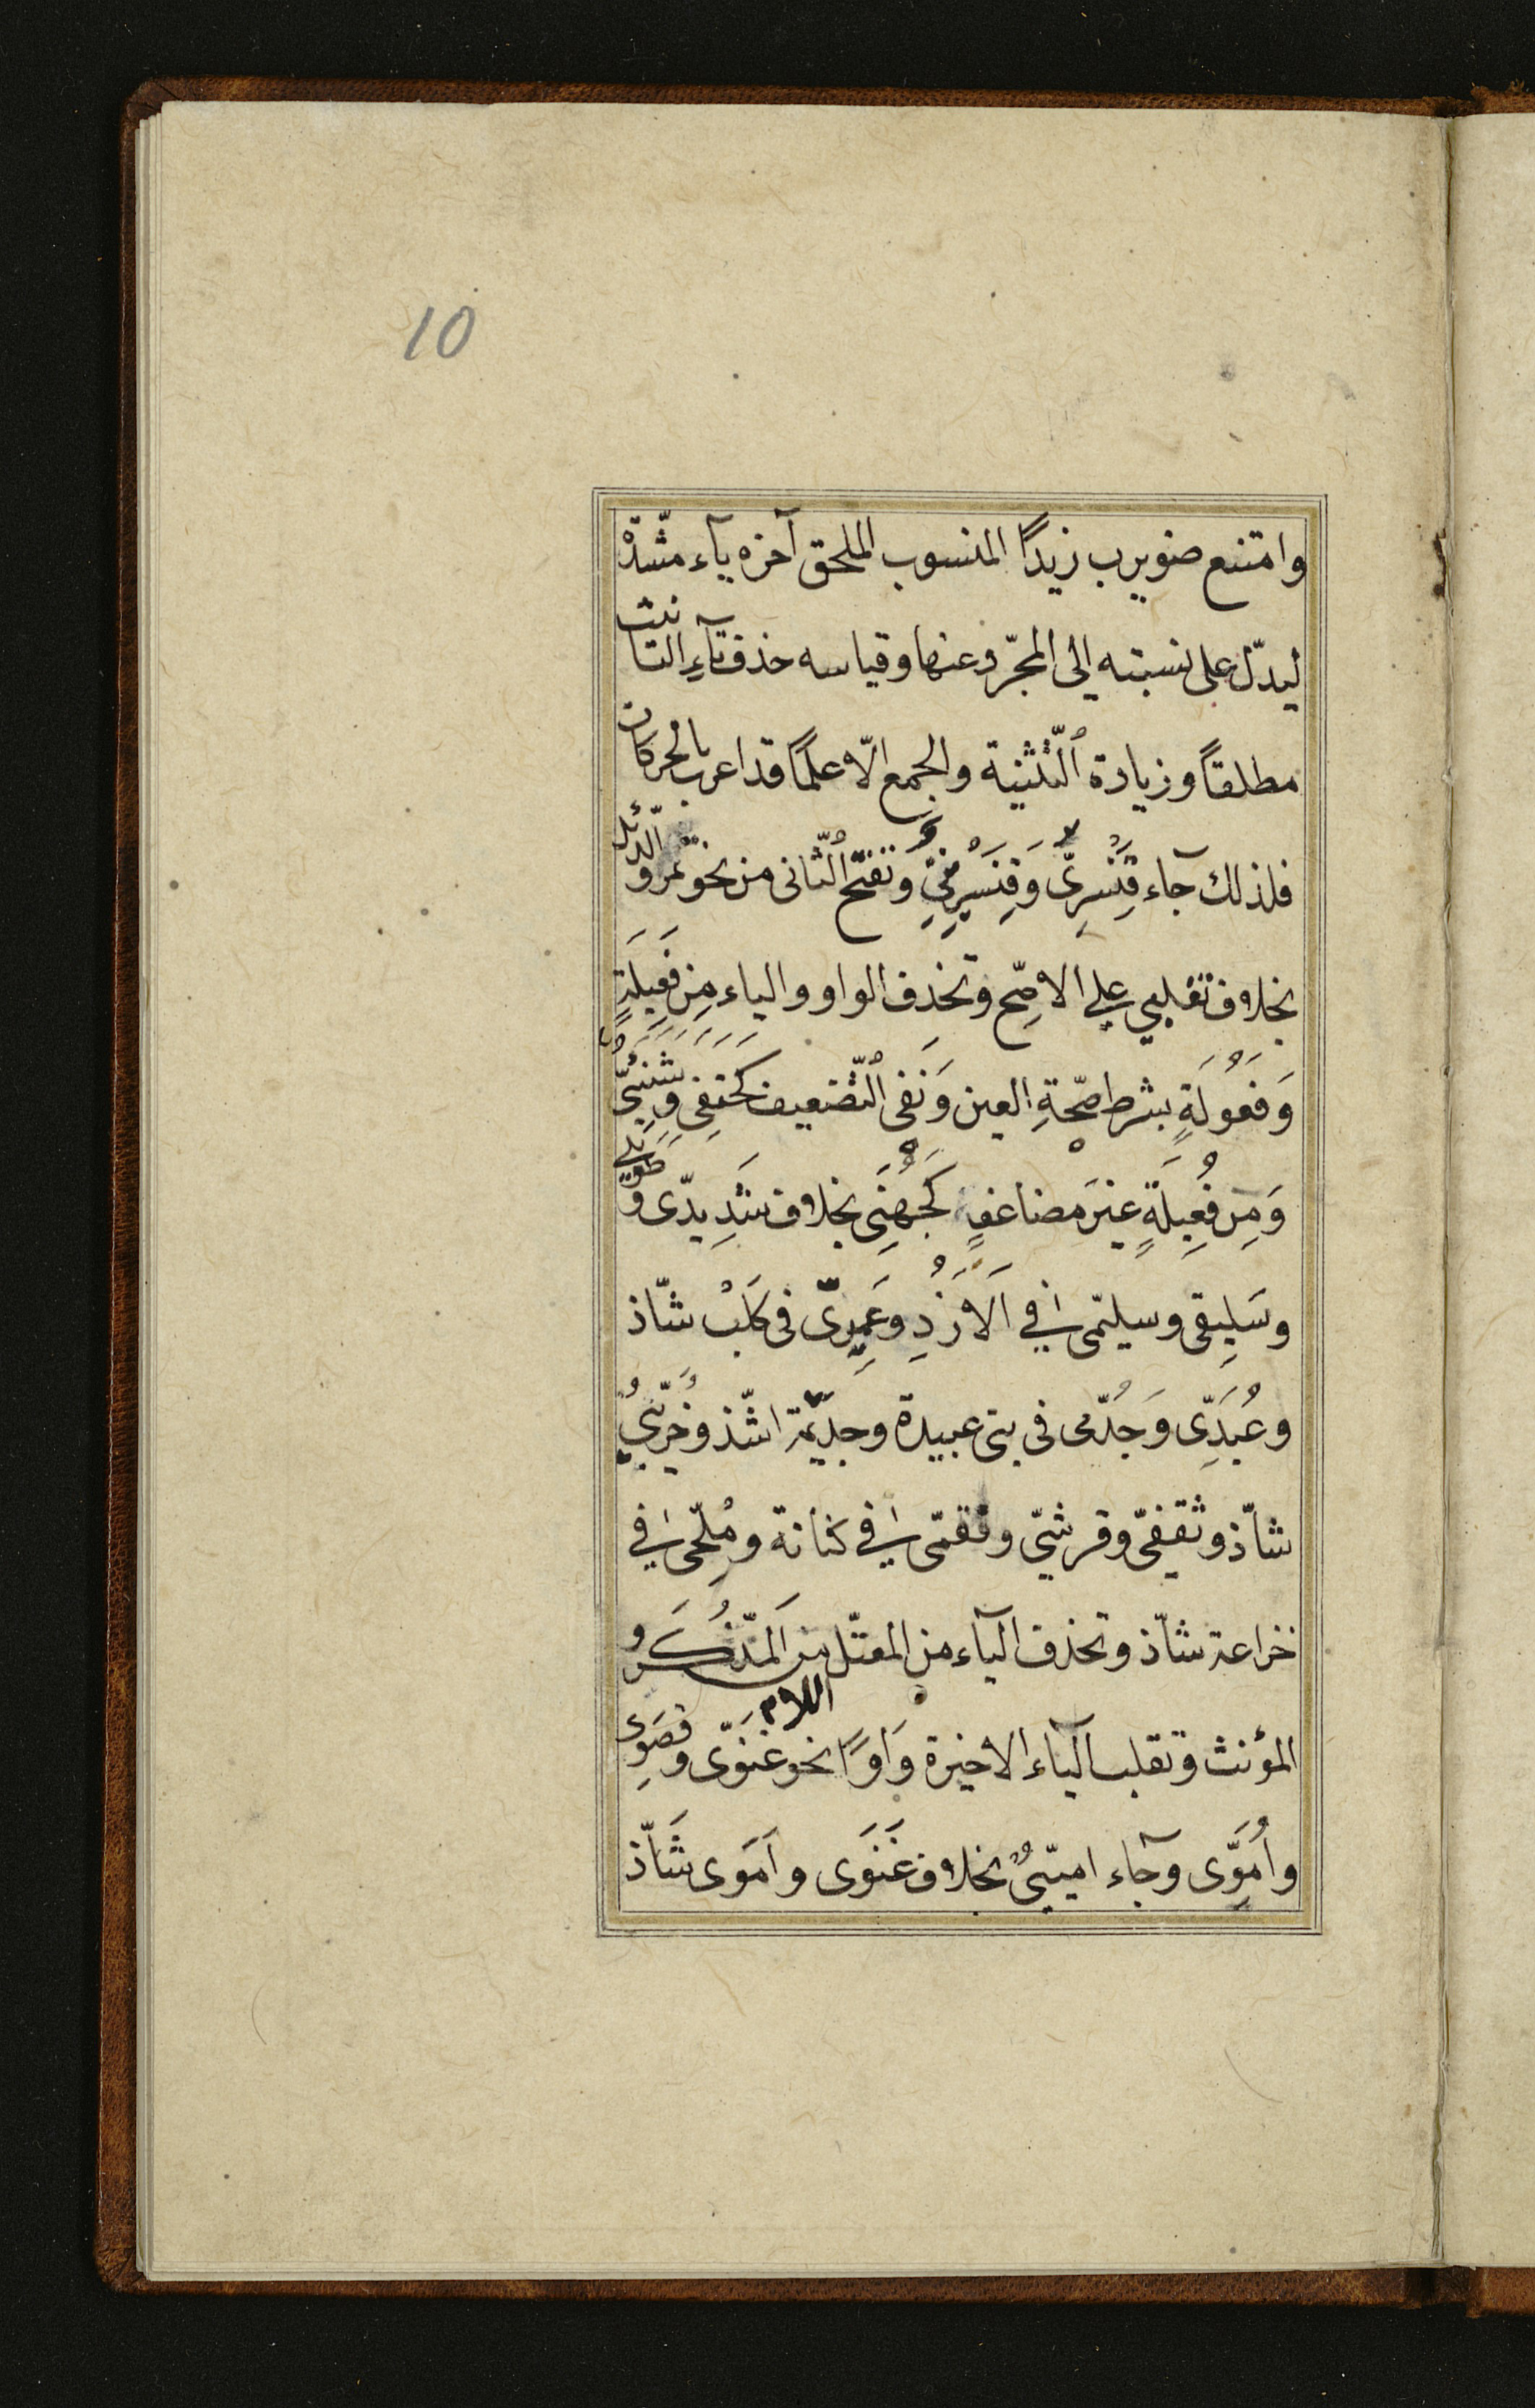 10
وامتنع ضويرب زيدًا المنسوب الملحق آخره ياء مشّددة
ليدلّ على نسبته الى المجرّد عنها وقياسه حذف تاءِ التانيث
مطلقاً وزيادة التّثنية والجمع الّا علمًا قد اعرب بالحركات
فلذلك جاء قِنَّسْرِىّ وَقِنَّسْرِينِىّ وتفتح الثّانى من نحو نمر و الدّئل
بخلاف تغلبى على الافصّح وتحذف الواو والياء مِن فَعِيلَةٍ
وَفَعُولَةٍ بشرط صحّةِ العين وَنَفى التّضعيف كحنفى وشنئىّ
وَمِن فُعِيلَةٍ غيرَ مضاعفٍ كَجُهَنى بخلاف شَدِيدّى و طويلى
وسَلِيقى وسليمّى فى اَلاَزدِ وعَمِيرىّ فى كَلبْ شاّذ
وعُبَدِّى وَجُذّمى فى بنى عبيدة وجذيمّة اشّذ وخُرَيْبىٌّ
شاّذ وثقفىّ وقرشىّ وفقمّى فى كنانة ومُلحّى فى
خزاعة شاّذ وتحذف الياء من المعتّل اللام من اَلمذّكر و
المؤنث وتقلب الياء الاخيرة وَاوًا نحو غَنَوّى وقصَوِى
وأُمَوِّى وجاء اميّىٌّ بخلاف غَنَوَى واَمَوى شَاّذ